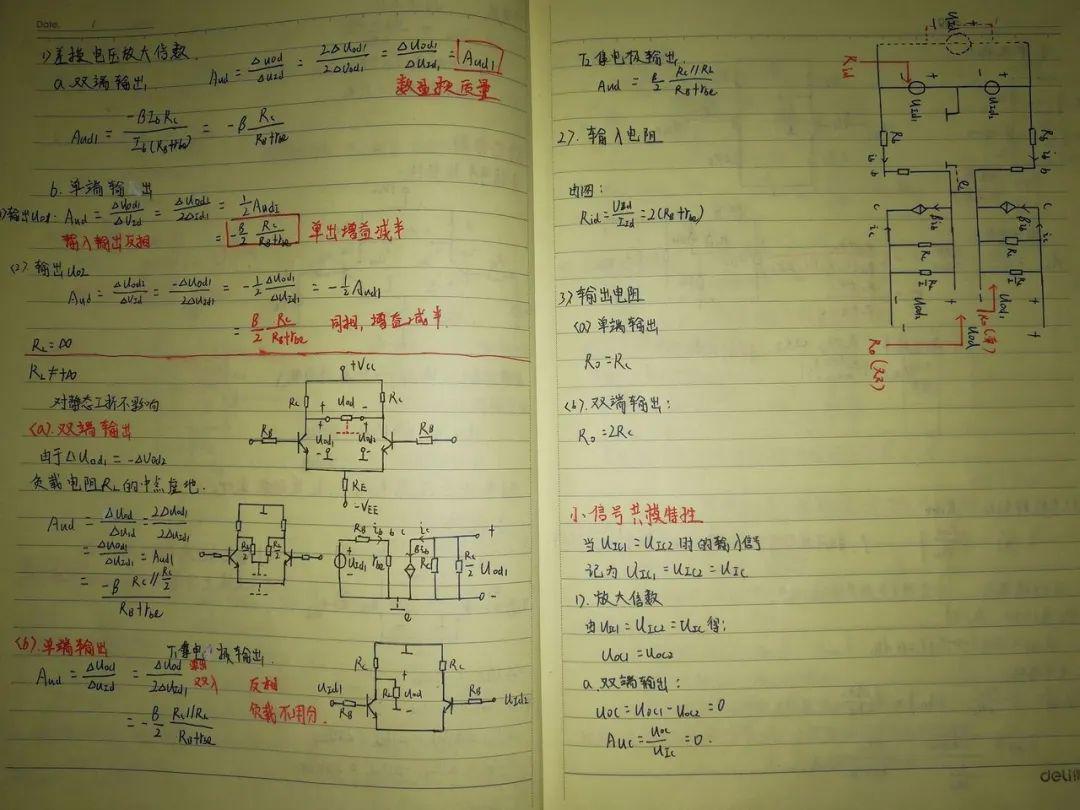 Date. /
1) 差模电压放大倍数
a. 双端输出 Aud = Δuod/ΔuId = 2Δuod1/2Δuod1 = Δuod1/ΔuId1 = Aud1
数量换质量
Aud1 = -βIbRc/Ib(RB+rbe) = -β Rc/(RB+rbe)
b. 单端输出
(1) 输出uod1: Aud = Δuod1/ΔuId = Δuod1/2ΔId1 = 1/2 Aud1
输入输出反相 = -β/2 Rc/(RB+rbe) 单出增益减半
(2) 输出uo2
Aud = Δuod2/ΔuId = -Δuod1/2ΔuId1 = -1/2 Δuod1/ΔuId1 = -1/2 Aud1
= β/2 Rc/(RB+rbe) 同相,增益减半.
RL=∞
RL≠+∞
对静态工作不影响
(a). 双端输出
由于Δuod1=-Δuod2
负载电阻RL的中点虚地.
Aud = Δuod/Δuid = 2Δuod1/2ΔuId1
= Δuod1/ΔuId1 = Aud1
= -β Rc//RL/2 / (RB+rbe)
+VCC
Rc + uod - Rc
RB uod1 uod2 RB
RE
-VEE
RL/2 RL/2
RB ib b c ic +
uId1 rbe βib Rc RL/2 uod1
e -
(b). 单端输出 T1集电极输出.
Aud = Δuod/ΔuId = Δuod/2ΔuId1 双入 反相
= -β/2 Rc//RL/(RB+rbe) 负载不用分.
Rc Rc
RL uod
uId1 RB RB uId2
T2集电极输出.
Aud = β/2 Rc//RL/(RB+rbe)
2). 输入电阻
由图:
Rid = uId/IId = 2(RB+rbe)
3) 输出电阻
(a) 单端输出
Ro=Rc
(b). 双端输出:
Ro=2Rc
uId
Rid
+ - + -
uId1 uId1
RB RB
ib ib
b b
e
c c
βib βib
ic ic
Rc Rc
RL/2 RL/2
- + - +
uod1 uod1
Ro(单)
uod
Ro(双)
小信号共模特性
当uIC1=uIC2时的输入信号
记为uIC1=uIC2=uIC
1). 放大倍数
由uIC1=uIC2=uIC得:
uoc1=uoc2
a. 双端输出:
uoc=uoc1-uoc2=0
Auc=uoc/uIc=0.
deli